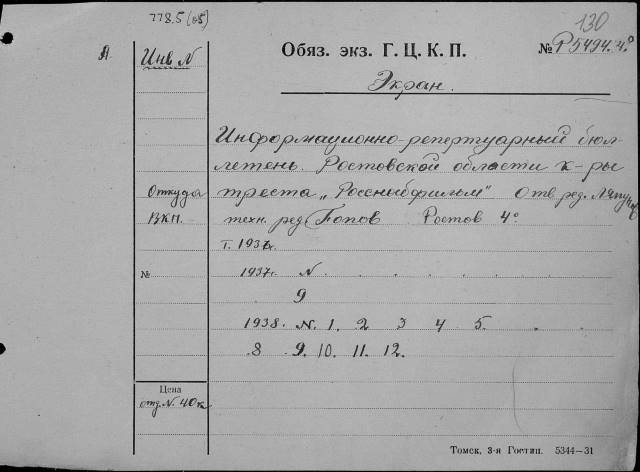 778.5 (05)
130
А.
Инв N
Обяз. экз. Г. Ц. К. П.
№ Р5494.4°
Экран.
Информационно-репертуарный бюл-
летень. Ростовской области к-ры
Откуда
треста „Росснабфильм" Отв ред.
ВКП.
техн. ред Попов Ростов 4°
Г. 1937г.
№
1937г. N . . . . . .
9
1938. N. 1. 2 3 4 5. . .
8 9. 10. 11. 12.
Цена
отд. N. 40к
Томск, 3-я Гостип. 5344—31